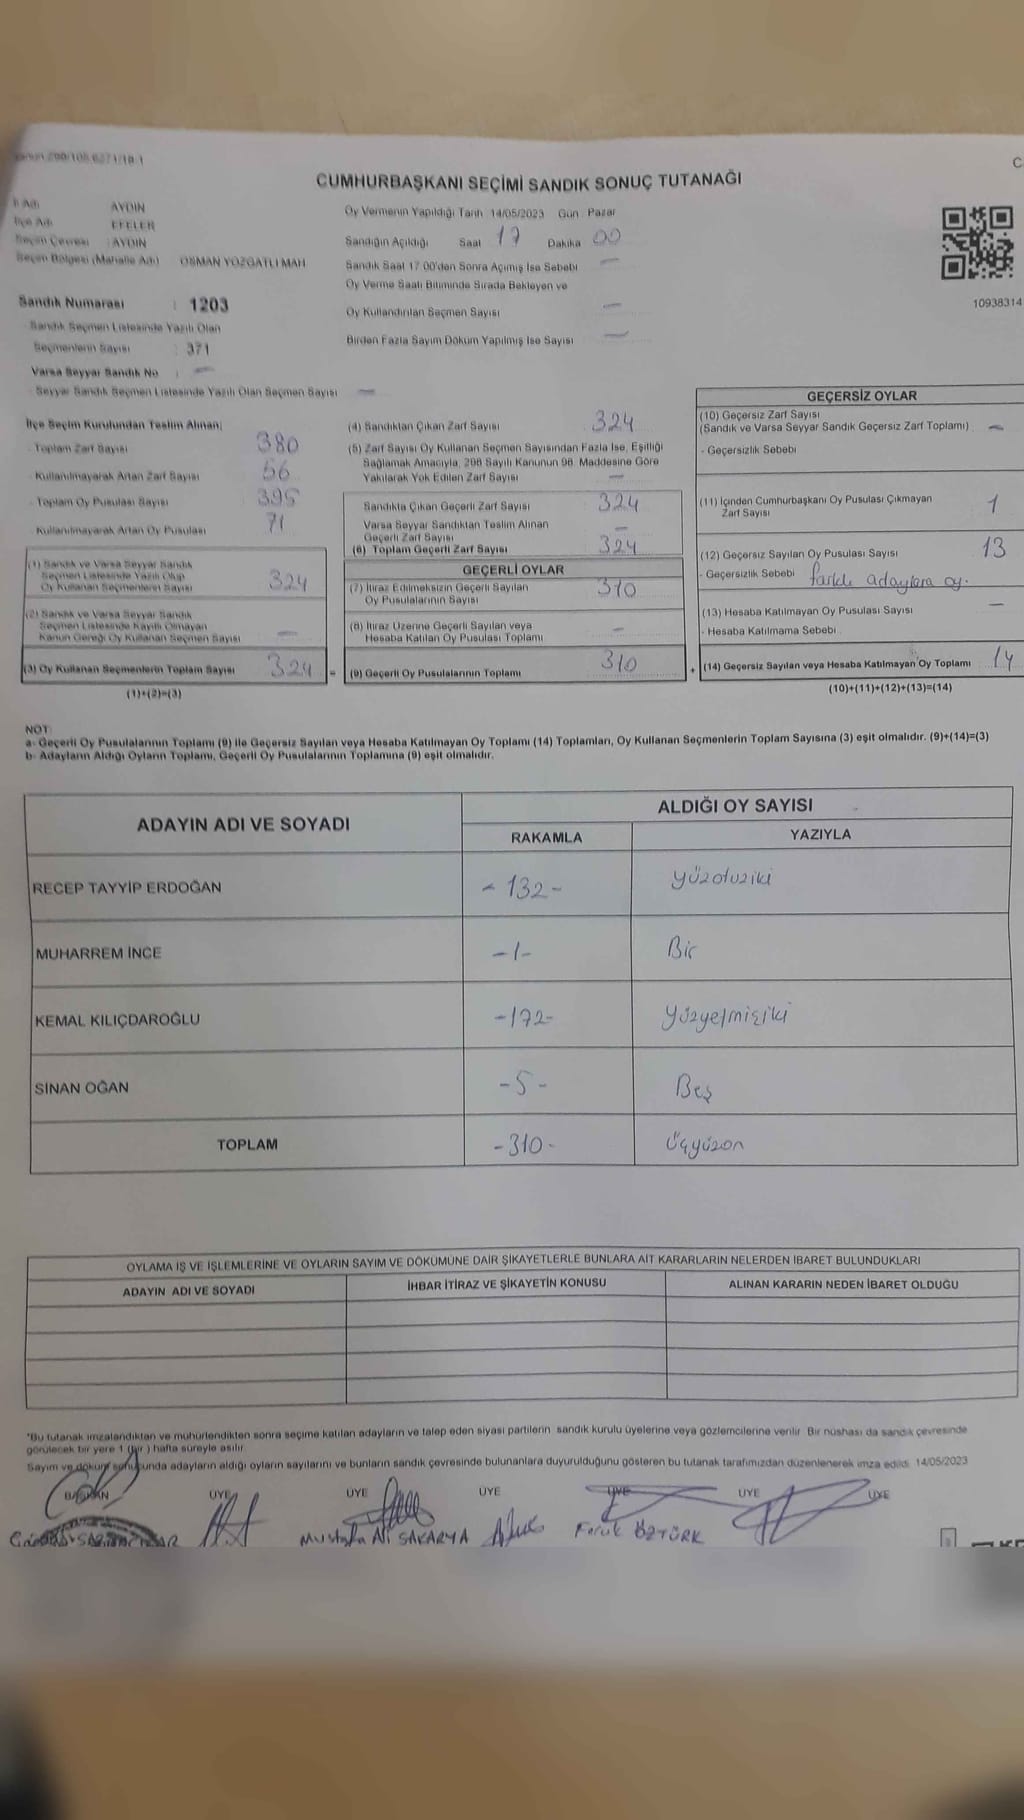 CUMHURBAŞKANI SEÇİMİ SANDIK SONUÇ TUTANAĞI
İl Adı AYDIN
İlçe Adı EFELER
Seçim Çevresi : AYDIN
Seçim Bölgesi (Mahalle Adı) OSMAN YOZGATLI MAH.
Sandık Numarası : 1203
Sandık Seçmen Listesinde Yazılı Olan
Seçmenlerin Sayısı : 371
Varsa Seyyar Sandık No : —
Seyyar Sandık Seçmen Listesinde Yazılı Olan Seçmen Sayısı —
Oy Vermenin Yapıldığı Tarih 14/05/2023 Gün : Pazar
Sandığın Açıldığı Saat 17 Dakika 00
Sandık Saat 17.00'den Sonra Açımış İse Sebebi —
Oy Verme Saati Bitiminde Sırada Bekleyen ve
Oy Kullandırılan Seçmen Sayısı —
Birden Fazla Sayım Döküm Yapılmış İse Sayısı —
10938314
İlçe Seçim Kurulundan Teslim Alınan;
- Toplam Zarf Sayısı 380
- Kullanılmayarak Artan Zarf Sayısı 56
- Toplam Oy Pusulası Sayısı 395
- Kullanılmayarak Artan Oy Pusulası 71
(1) Sandık ve Varsa Seyyar Sandık
Seçmen Listesinde Yazılı Olup
Oy Kullanan Seçmenlerin Sayısı 324
(2) Sandık ve Varsa Seyyar Sandık
Seçmen Listesinde Kayıtlı Olmayan
Kanun Gereği Oy Kullanan Seçmen Sayısı —
(3) Oy Kullanan Seçmenlerin Toplam Sayısı 324 =
(1)+(2)=(3)
(4) Sandıktan Çıkan Zarf Sayısı 324
(5) Zarf Sayısı Oy Kullanan Seçmen Sayısından Fazla İse, Eşitliği
Sağlamak Amacıyla, 298 Sayılı Kanunun 98. Maddesine Göre
Yakılarak Yok Edilen Zarf Sayısı —
Sandıkta Çıkan Geçerli Zarf Sayısı 324
Varsa Seyyar Sandıktan Teslim Alınan
Geçerli Zarf Sayısı —
(6) Toplam Geçerli Zarf Sayısı 324
GEÇERLİ OYLAR
(7) İtiraz Edilmeksizin Geçerli Sayılan
Oy Pusulalarının Sayısı 310
(8) İtiraz Üzerine Geçerli Sayılan veya
Hesaba Katılan Oy Pusulası Toplamı —
(9) Geçerli Oy Pusulalarının Toplamı 310 +
GEÇERSİZ OYLAR
(10) Geçersiz Zarf Sayısı
(Sandık ve Varsa Seyyar Sandık Geçersiz Zarf Toplamı) —
- Geçersizlik Sebebi
(11) İçinden Cumhurbaşkanı Oy Pusulası Çıkmayan
Zarf Sayısı 1
(12) Geçersiz Sayılan Oy Pusulası Sayısı 13
- Geçersizlik Sebebi farklı adaylara oy.
(13) Hesaba Katılmayan Oy Pusulası Sayısı —
- Hesaba Katılmama Sebebi
(14) Geçersiz Sayılan veya Hesaba Katılmayan Oy Toplamı 14
(10)+(11)+(12)+(13)=(14)
NOT:
a- Geçerli Oy Pusulalarının Toplamı (9) ile Geçersiz Sayılan veya Hesaba Katılmayan Oy Toplamı (14) Toplamları, Oy Kullanan Seçmenlerin Toplam Sayısına (3) eşit olmalıdır. (9)+(14)=(3)
b- Adayların Aldığı Oyların Toplamı, Geçerli Oy Pusulalarının Toplamına (9) eşit olmalıdır.
ADAYIN ADI VE SOYADI ALDIĞI OY SAYISI
RAKAMLA YAZIYLA
RECEP TAYYİP ERDOĞAN -132- yüzotuziki
MUHARREM İNCE -1- Bir
KEMAL KILIÇDAROĞLU -172- Yüzyetmişiki
SİNAN OĞAN -5- Beş
TOPLAM -310- Üçyüzon
OYLAMA İŞ VE İŞLEMLERİNE VE OYLARIN SAYIM VE DÖKÜMÜNE DAİR ŞİKAYETLERLE BUNLARA AİT KARARLARIN NELERDEN İBARET BULUNDUKLARI
ADAYIN ADI VE SOYADI İHBAR İTİRAZ VE ŞİKAYETİN KONUSU ALINAN KARARIN NEDEN İBARET OLDUĞU
*Bu tutanak imzalandıktan ve mühürlendikten sonra seçime katılan adayların ve talep eden siyasi partilerin sandık kurulu üyelerine veya gözlemcilerine verilir. Bir nüshası da sandık çevresinde
görülecek bir yere 1 (bir) hafta süreyle asılır.
Sayım ve döküm sonucunda adayların aldığı oyların sayılarını ve bunların sandık çevresinde bulunanlara duyurulduğunu gösteren bu tutanak tarafımızdan düzenlenerek imza edildi. 14/05/2023
BAŞKAN ÜYE ÜYE ÜYE ÜYE ÜYE ÜYE
Mustafa Ali SAKARYA Faruk ÖZTÜRK